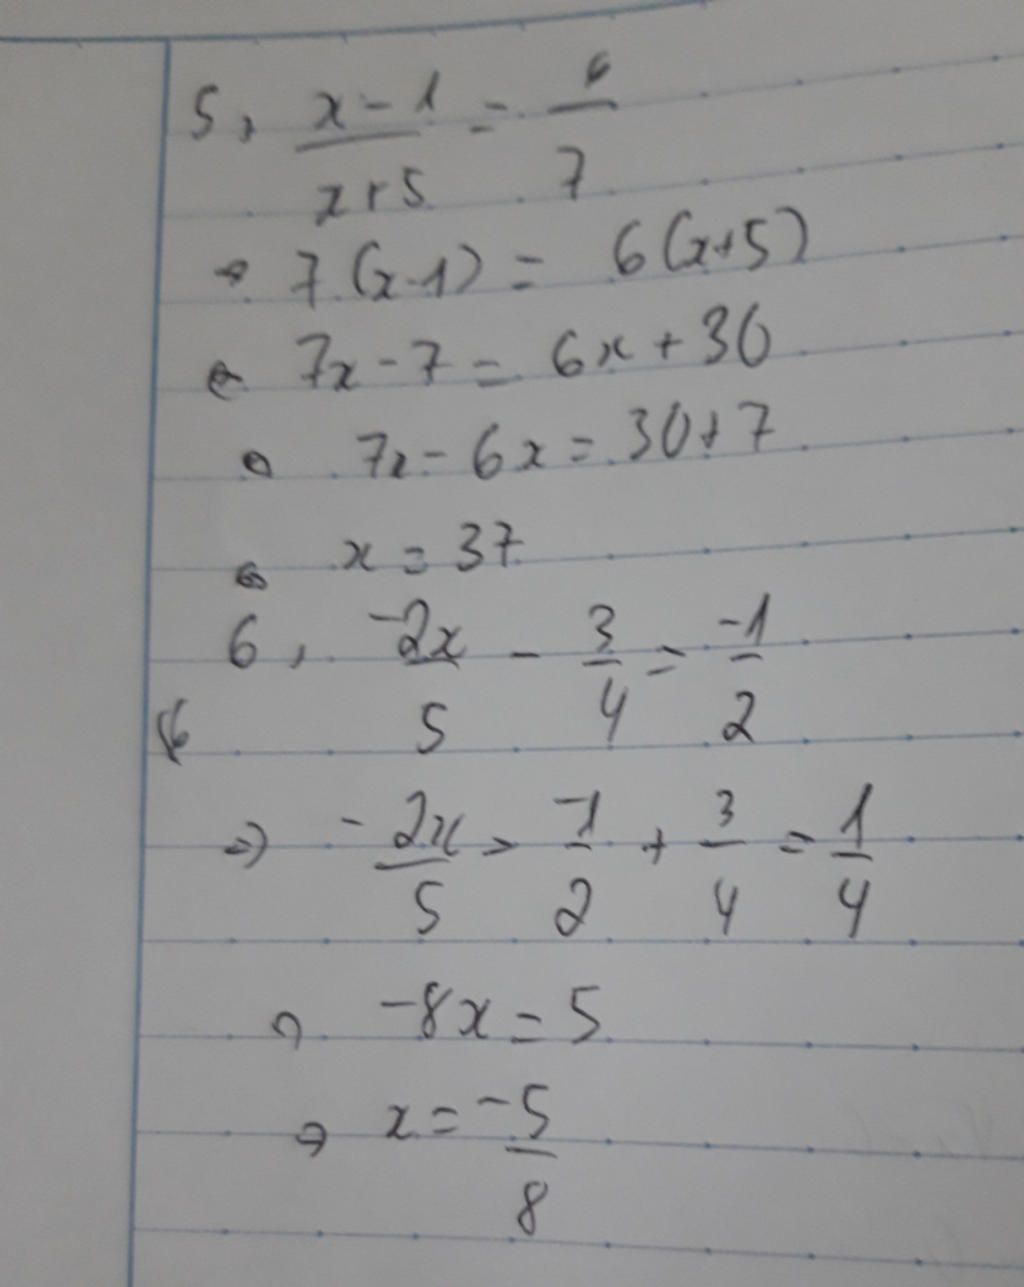 5, (x-1)/(x+5) = 6/7
⇒ 7(x-1) = 6(x+5)
⇔ 7x-7 = 6x+30
⇔ 7x-6x = 30+7
⇔ x = 37
6, -2x/5 - 3/4 = -1/2
⇒ -2x/5 = -1/2 + 3/4 = 1/4
⇒ -8x = 5
⇒ x = -5/8